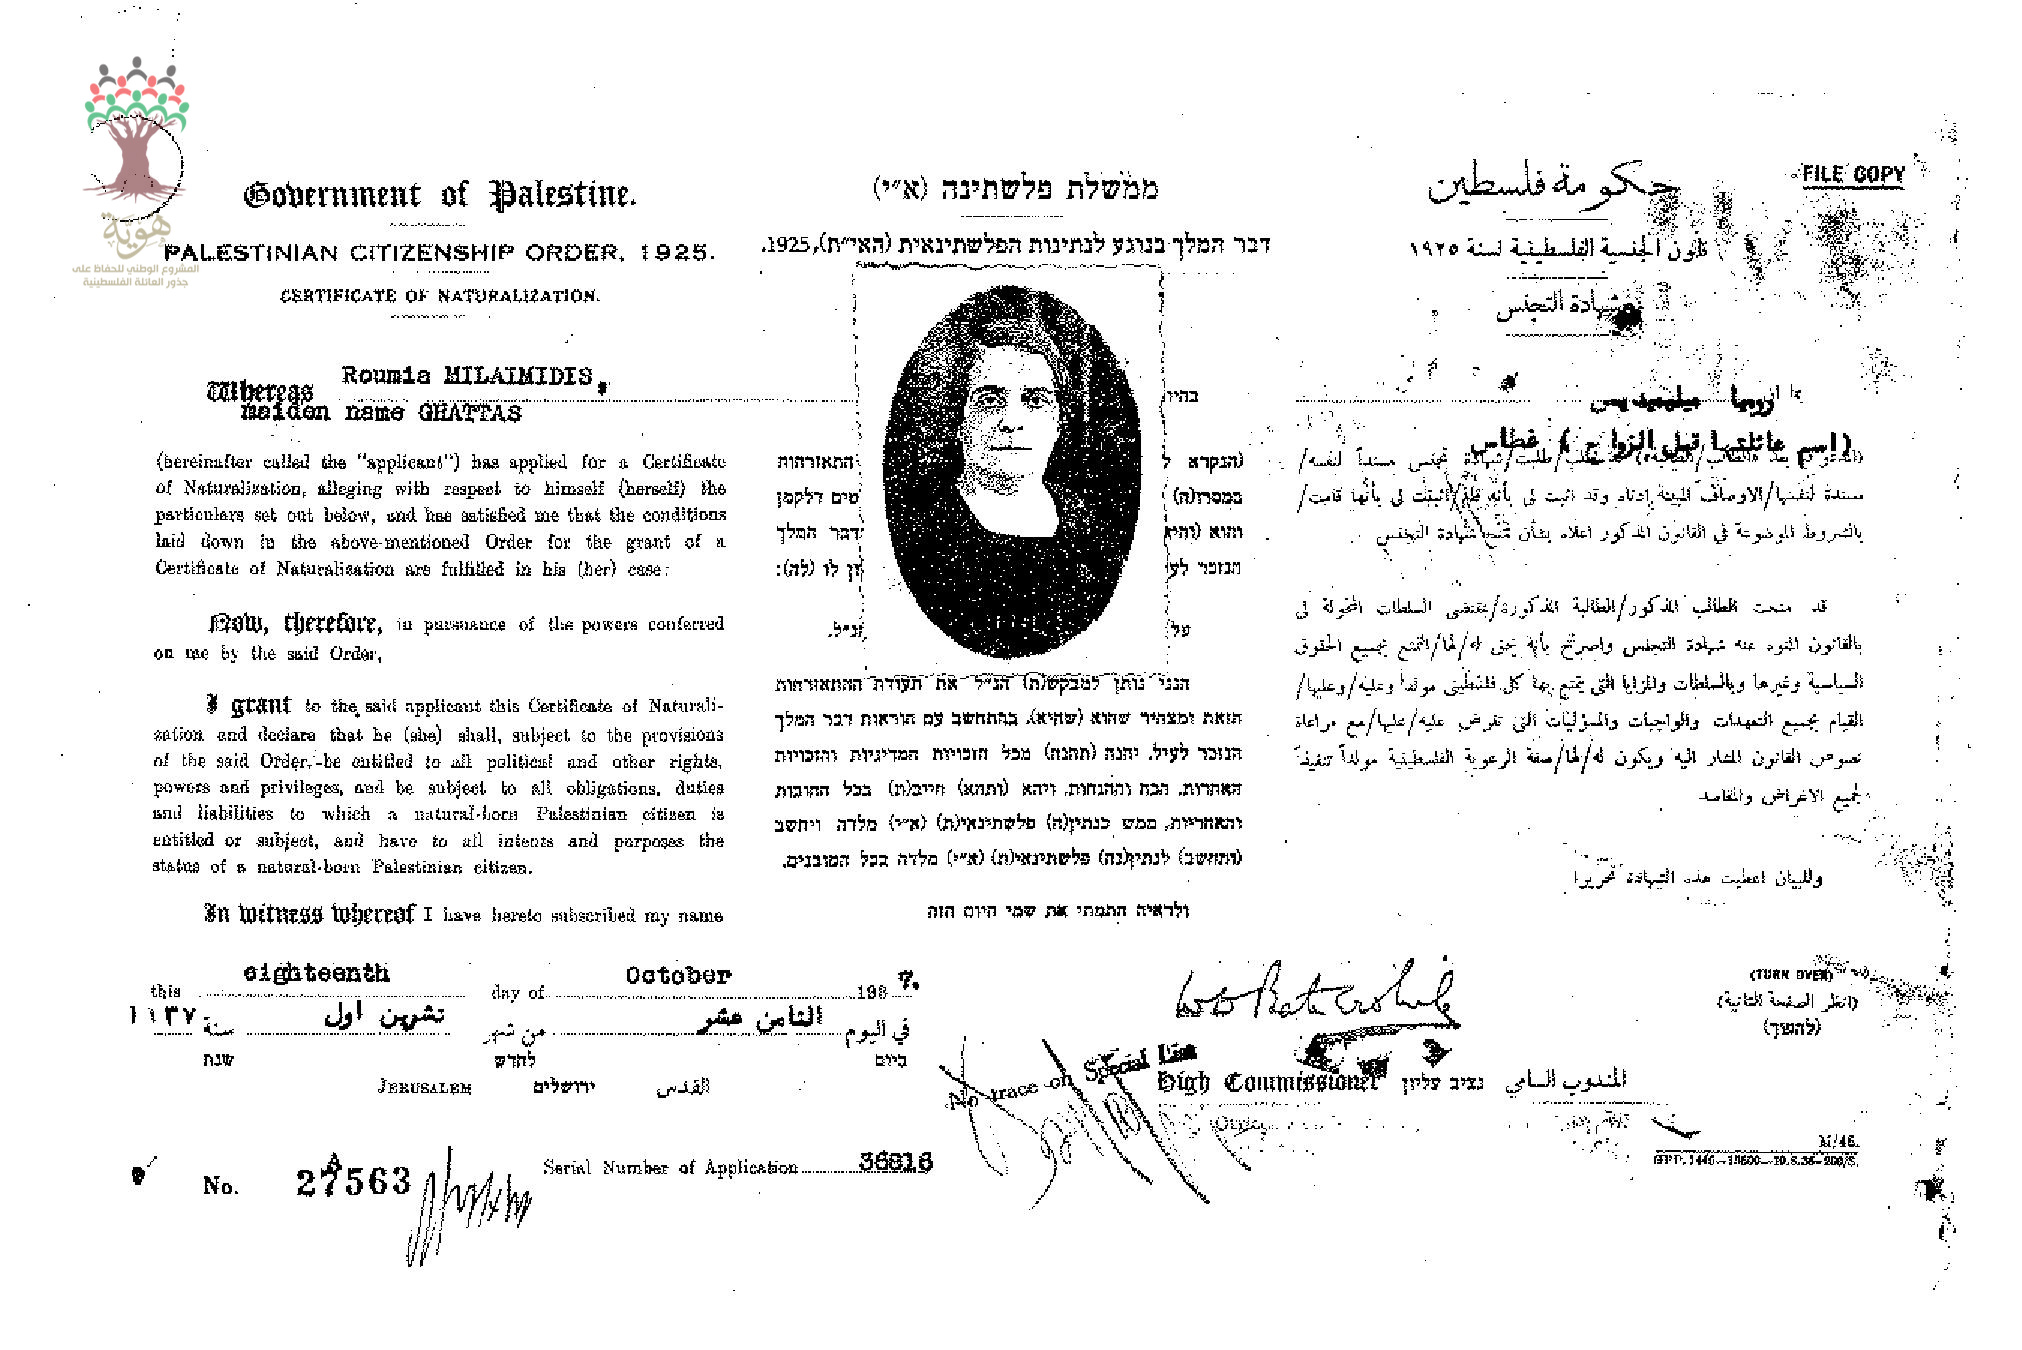 هوية
المشروع الوطني للحفاظ على
جذور العائلة الفلسطينية
Government of Palestine.
PALESTINIAN CITIZENSHIP ORDER, 1925.
CERTIFICATE OF NATURALIZATION.
Whereas Roumia MILAIMIDIS,
maiden name GHATTAS
(hereinafter called the "applicant") has applied for a Certificate
of Naturalisation, alleging with respect to himself (herself) the
particulars set out below, and has satisfied me that the conditions
laid down in the above-mentioned Order for the grant of a
Certificate of Naturalisation are fulfilled in his (her) case:
Now, therefore, in pursuance of the powers conferred
on me by the said Order,
I grant to the said applicant this Certificate of Naturali-
sation and declare that he (she) shall, subject to the provisions
of the said Order, be entitled to all political and other rights,
powers and privileges, and be subject to all obligations, duties
and liabilities to which a natural-born Palestinian citizen is
entitled or subject, and have to all intents and purposes the
status of a natural-born Palestinian citizen.
In witness whereof I have hereto subscribed my name
this eighteenth day of October 1937.
في اليوم الثامن عشر من شهر تشرين اول سنة ١٩٣٧
ביום לחדש שנת
JERUSALEM ירושלים القدس
No. 27563
A
Serial Number of Application 36816
ממשלת פלשתינה (א״י)
דבר המלך בנוגע לנתינות הפלשתינאית (הא״ית), 1925.
(הנקרא ל התאזרחות
במסרו(ה)
והוא (והיא דבר המלך
הנזכר לעיל לו (לה):
על הנ״ל.
הנני נותן למבקש(ת) הנ״ל את תעודת ההתאזרחות
הזאת ומצהיר שהוא (שהיא), בהתחשב עם הוראות דבר המלך
הנזכר לעיל, יהנה (תהנה) מכל הזכויות המדיניות והזכויות
האחרות, הכח וההנחות, ויהא (ותהא) חייב(ת) בכל החובות
והאחריות, ממש כנתין(ה) פלשתינאי(ת) (א״י) מלדה ויחשב
(ותחשב) לנתין(נה) פלשתינאי(ת) (א״י) מלדה בכל המובנים.
ולראיה חתמתי את שמי היום הזה
FILE COPY
حكومة فلسطين
قانون الجنسية الفلسطينية لسنة ١٩٢٥
شهادة التجنس
(اسم عائلتها قبل الزواج) غطاس
مسندة لنفسها/الاوصاف المبينة ادناه وقد اثبت لي بأنه قام/اثبتت لي بأنها قامت/
بالشروط الموضوعة في القانون المذكور اعلاه بشأن منح شهادة التجنس
قد منحت الطالب المذكور/الطالبة المذكورة/بمقتضى السلطات المخولة لي
بالقانون المنوه عنه شهادة التجنس واصرح بأنه يحق له/لها/التمتع بجميع الحقوق
السياسية وغيرها وبالسلطات والمزايا التي يتمتع بها كل فلسطيني مولداً وعليه/وعليها/
القيام بجميع التعهدات والواجبات والمسؤليات التي تفرض عليه/عليها/مع مراعاة
نصوص القانون المشار اليه ويكون له/لها/صفة الرعوية الفلسطينية مولداً تنفيذاً
لجميع الاغراض والمقاصد
وللبيان اعطيت هذه الشهادة تحريرا
(TURN OVER)
(انظر الصفحة الثانية)
(להפוך)
No trace on Special List
High Commissioner נציב עליון المندوب السامي
M/46.